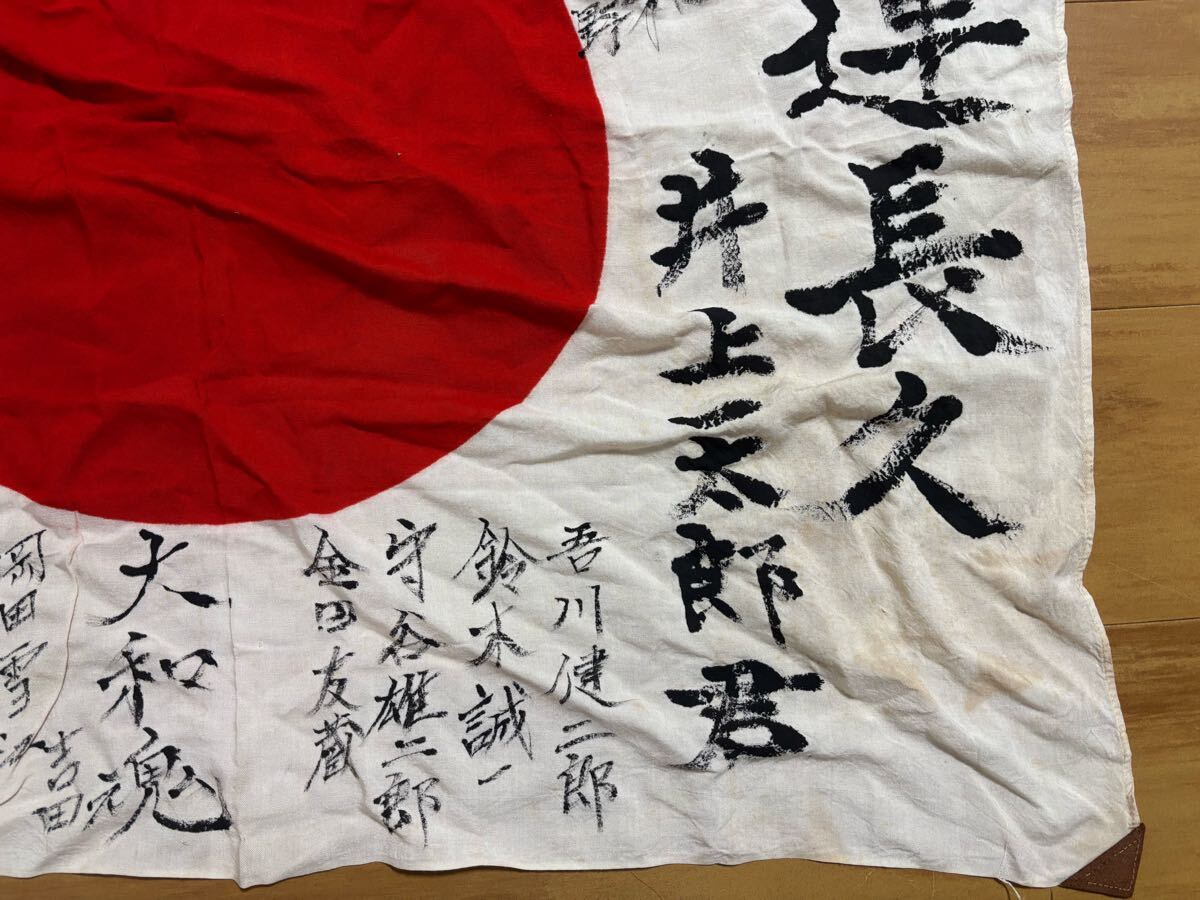 運長久
井上一太郎君
野
吾川健二郎
鈴木誠一
守谷雄二郎
金田友蔵
大和魂
吉田
岡田雪江